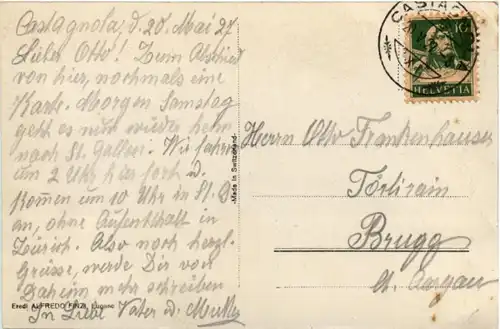 Castagnola, d. 20. Mai 27
Lieber Otto! Zum Abschied
von hier, nochmals eine
Karte. Morgen Samstag
geht es nun wieder heim
nach St. Gallen. Wir fahren
um 2 Uhr hier fort u.
kommen um 10 Uhr in St. G.
an, ohne Aufenthalt in
Zürich. Also noch herzl.
Grüsse, werde Dir von
Daheim mehr schreiben
In Liebe Vater u.
Eredi ALFREDO FINZI, Lugano
Made in Switzerland
CASTAG
10
HELVETIA
Herrn Otto Frankenhauser
Törlirain
Brugg
Kt. Aargau